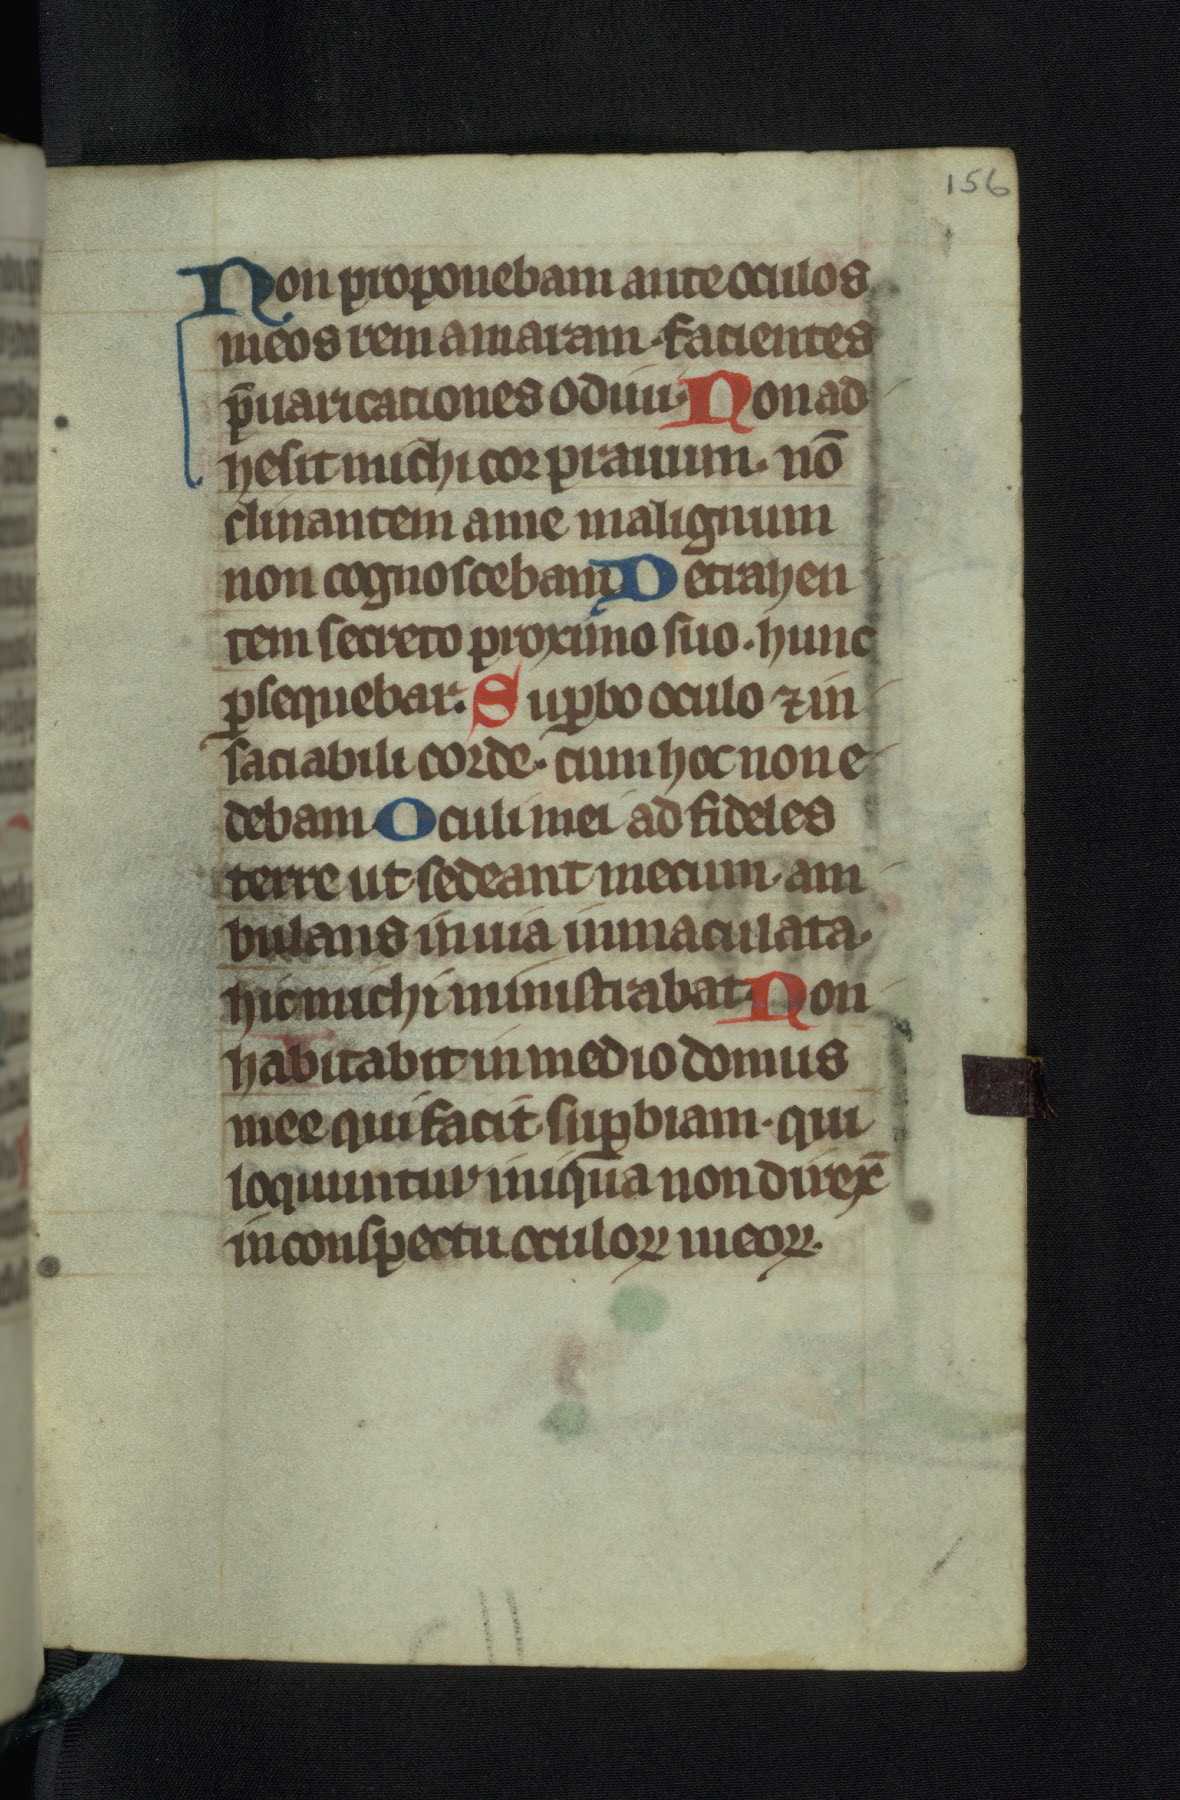 156
Non proponebam ante oculos
meos rem amaram · facientes
p̄uaricationes odiui · Non ad
hesit michi cor prauum · nō
clinantem a me malignum
non cognoscebam Detrahen
tem secreto proximo suo · hunc
ꝑsequebar · Suꝑbo oculo ⁊ in
saciabili corde · cum hoc non e
debam Oculi mei ad fideles
terre ut sedeant mecum · am
bulans in uia inmaculata ·
hic michi ministrabat · Non
habitabit in medio domus
mee qui facit suꝑbiam · qui
loquuntur iniqua non direx̄
in conspectu oculoꝝ meoꝝ ·